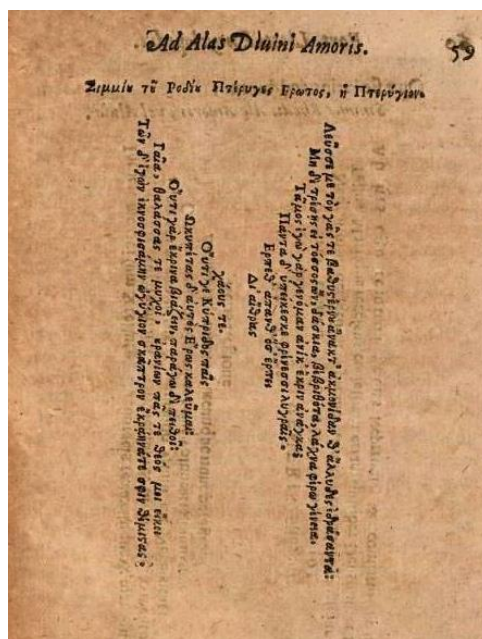 Ad Alas Diuini Amoris.
59
Σιμμίου τοῦ Ροδίου Πτέρυγες Ερωτος, ἢ Πτερύγιον.
Λεῦσσέ με τὸν γᾶς τε ἄνακτ' ἀκμονίδαν θ' ἄλλυδις ἑδράσαντα:
Μὴ δὲ τρέσῃς εἰ τόσσος ὢν, δάσκια, βέβριθότα, λάχνα φέρω γένεια.
Τᾶμος ἐγὼ γὰρ γενόμαν ἁνίκ' ἔκριν' ἀνάγκα
Πάντα δ' ὑπείκεσκε φρένεσσι λυγραῖς.
Ερπεθ' ἅπανθ' ὅσ' ἕρπει
Δι' αἴθρας
χάους τε.
Οὔτι γε Κύπριδος παῖς
Ωκυπέτας δ' αὐτὸς Ερως καλεῦμαι:
Οὔτι γὰρ ἔκρινα βιάζειν, παράγω δὲ πειθοῖ:
Γαῖα, θαλάσσας τε μυχοὶ, οὐρανίων πᾶς τε θεός μοι εἴκει
Τῶν δ' ἐγὼν ἐκνοσφισάμην ὠγύγιον σκᾶπτρον ἐκραινάτε σφιν θέμιτας.